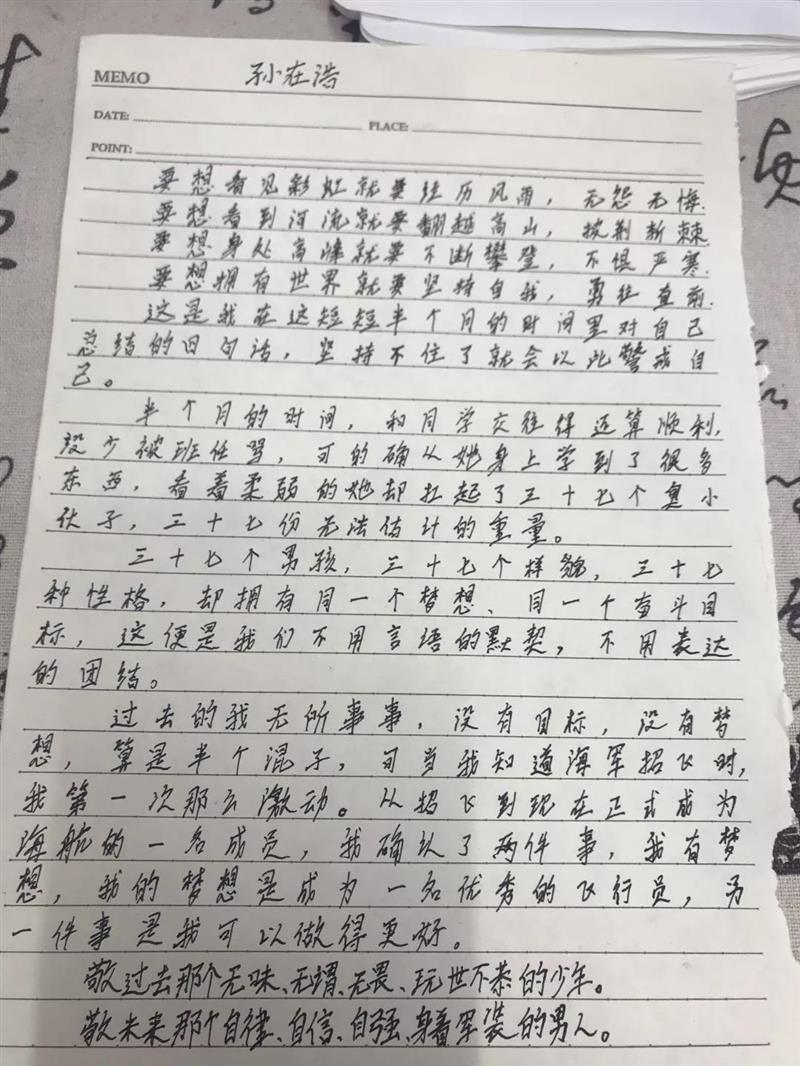 MEMO 孙在浩
DATE: PLACE:
POINT:
要想看见彩虹就要经历风雨，无怨无悔.
要想看到河流就要翻越高山，披荆斩棘
要想身处高峰就要不断攀登，不惧严寒.
要想拥有世界就要坚持自我，勇往直前.
这是我在这短短半个月的时间里对自己
总结的四句话，坚持不住了就会以此警戒自
己。
半个月的时间，和同学交往得还算顺利,
没少被班任骂，可的确从她身上学到了很多
东西，看着柔弱的她却扛起了三十七个臭小
伙子，三十七份无法估计的重量。
三十七个男孩，三十七个样貌，三十七
种性格，却拥有同一个梦想、同一个奋斗目
标，这便是我们不用言语的默契，不用表达
的团结。
过去的我无所事事，没有目标，没有梦
想，算是半个混子，可当我知道海军招飞时,
我第一次那么激动。从招飞到现在正式成为
海航的一名成员，我确认了两件事，我有梦
想，我的梦想是成为一名优秀的飞行员，另
一件事是我可以做得更好。
敬过去那个无味、无谓、无畏、玩世不恭的少年。
敬未来那个自律、自信、自强、身着军装的男人。